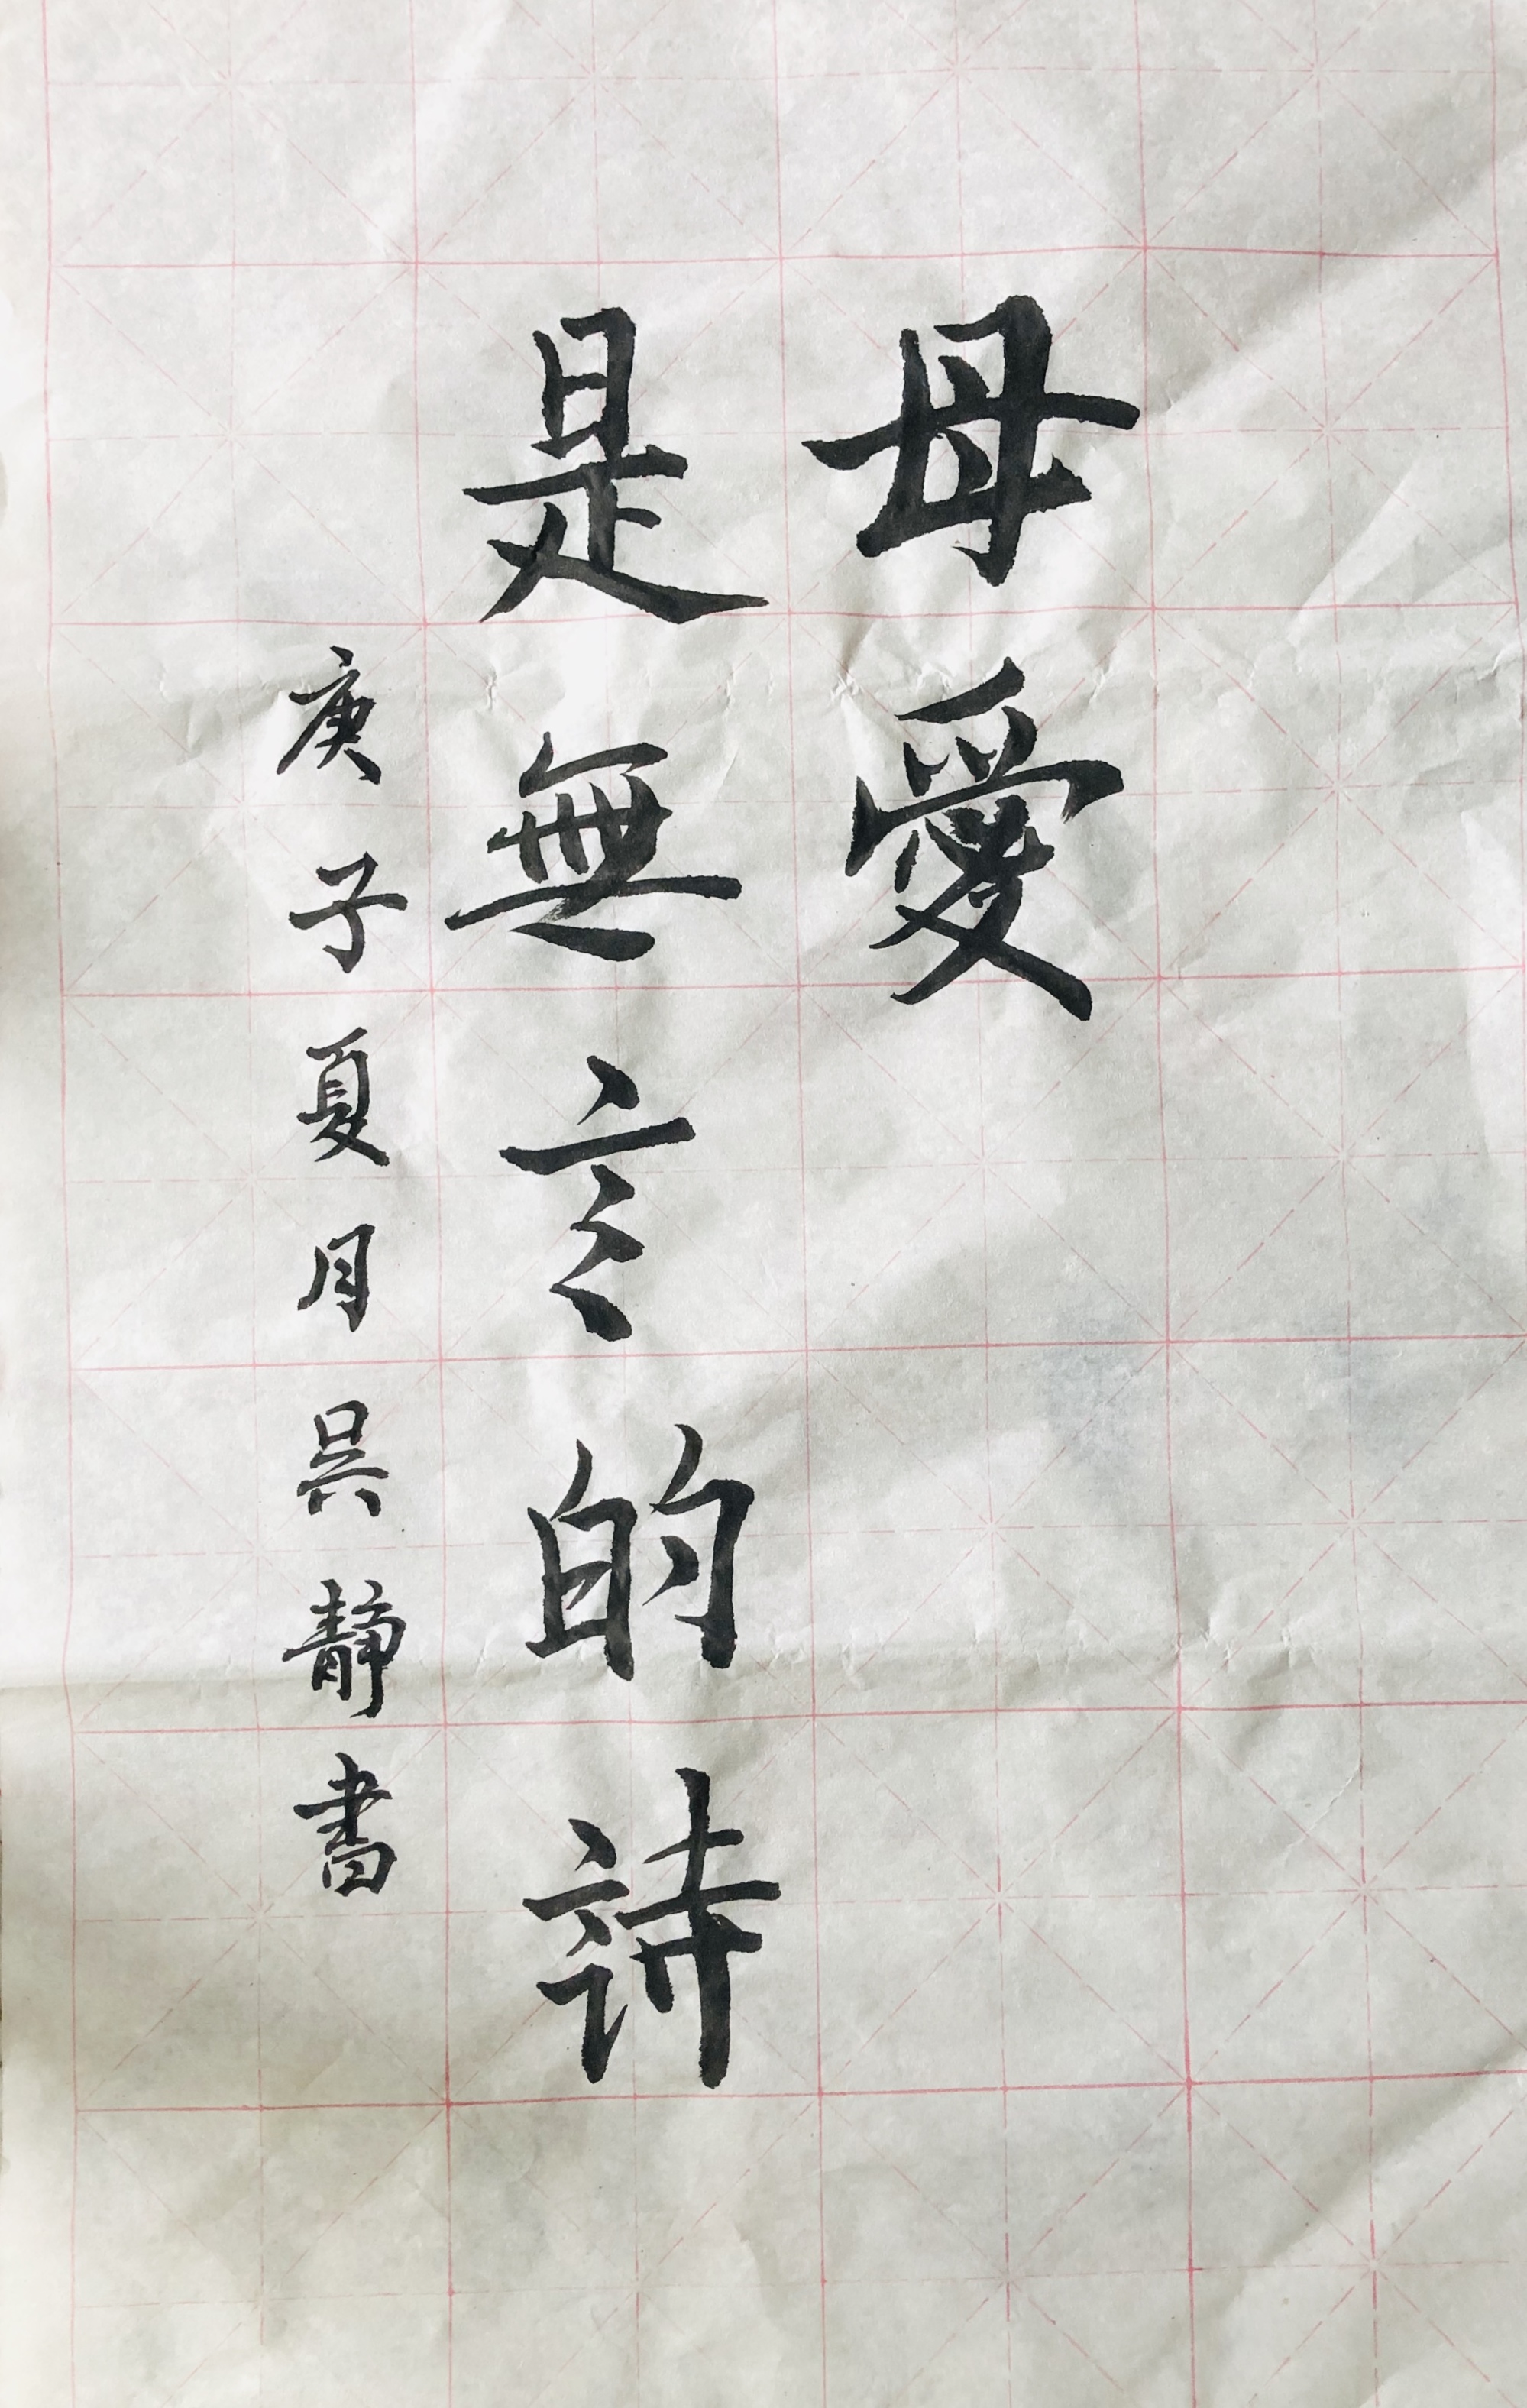 母愛
是無言的詩
庚子夏月吴靜書